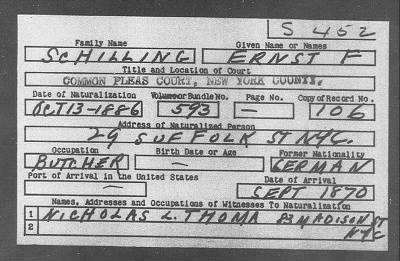 S 452
Family Name Given Name or Names
SCHILLING ERNST F
Title and Location of Court
COMMON PLEAS COURT, NEW YORK COUNTY.
Date of Naturalization Volume or Bundle No. Page No. Copy of Record No.
OCT 13-1886 593 — 106
Address of Naturalized Person
29 SUFFOLK ST NYC.
Occupation Birth Date or Age Former Nationality
BUTCHER — GERMAN
Port of Arrival in the United States Date of Arrival
— SEPT 1870
Names, Addresses and Occupations of Witnesses To Naturalization
1 NICHOLAS L. THOMA 83 MADISON ST
2 NYC